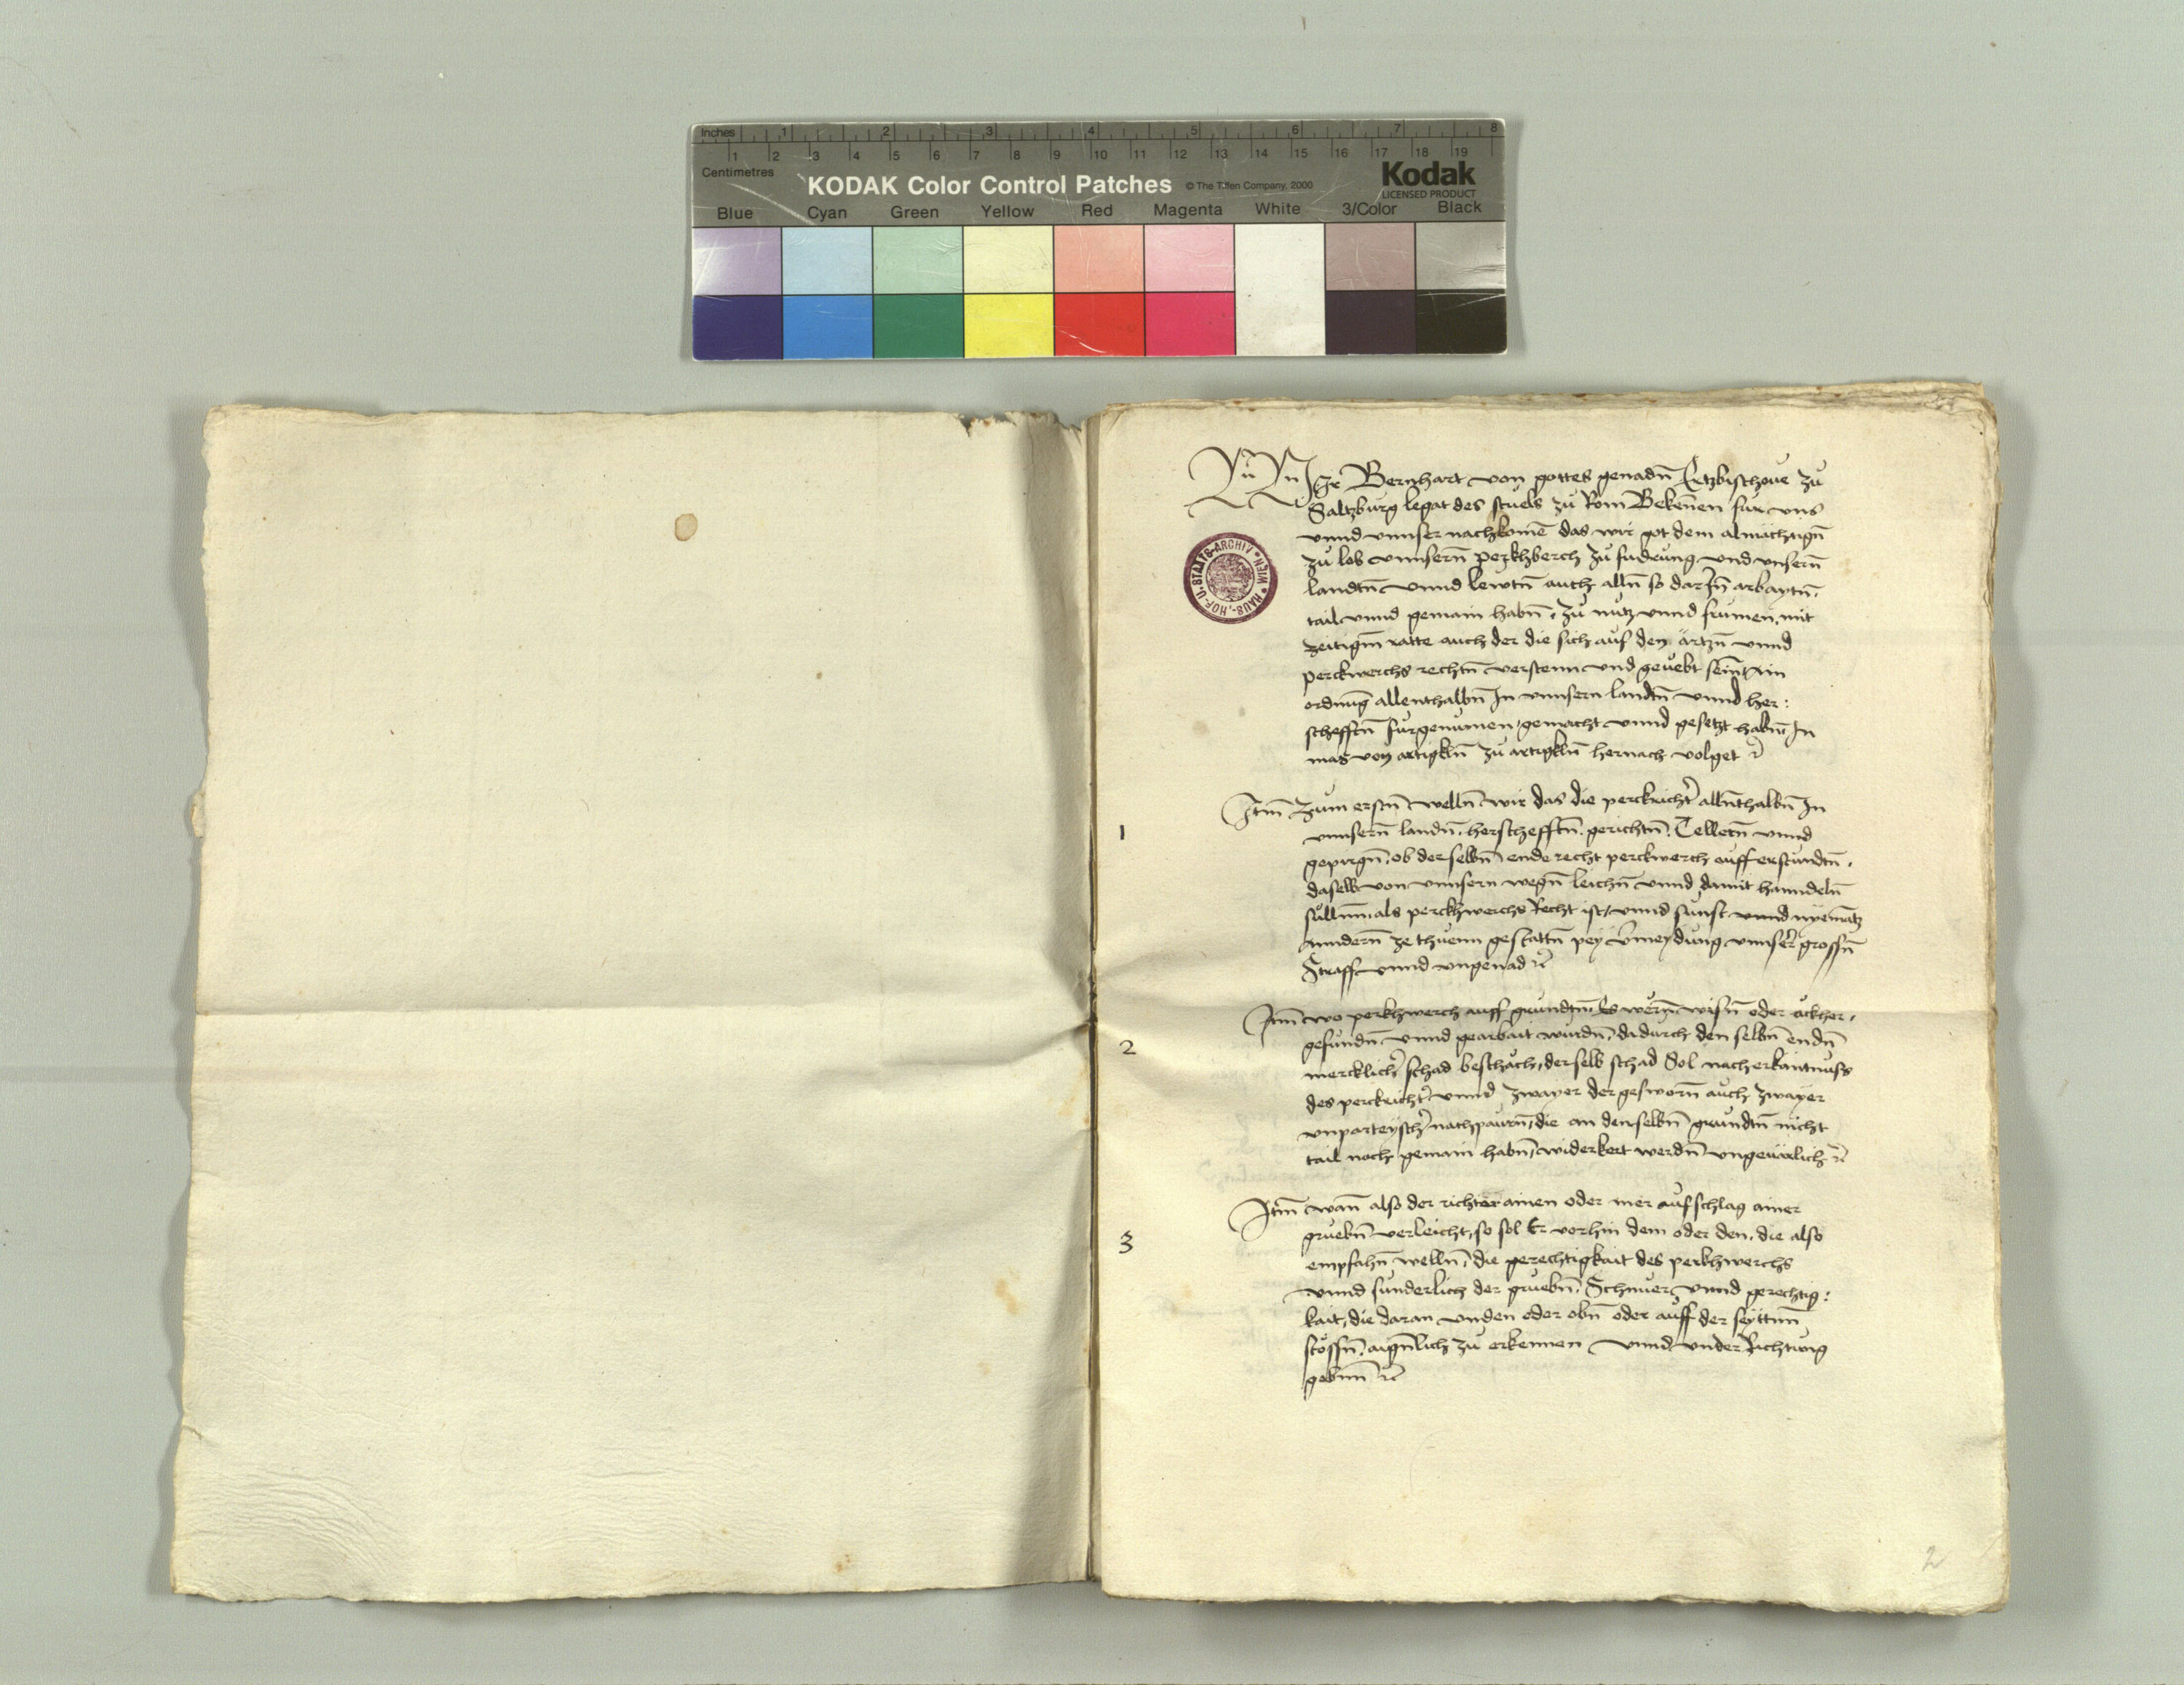 Inches 1 2 3 4 5 6 7 8
1 2 3 4 5 6 7 8 9 10 11 12 13 14 15 16 17 18 19
Centimetres
KODAK Color Control Patches © The Tiffen Company, 2000 Kodak
LICENSED PRODUCT
Blue Cyan Green Yellow Red Magenta White 3/Color Black
Wir Bernhart von gottes genadn̄ Ertzbischoue zu
Saltzburg legat des stuels zu Rom Bekennen fur vns
vnnd vnnser nachkomē das wir got dem almächtign̄
zu lob vnnsern̄ perkhberch zu fudrung vnd vnsern̄
landtn̄ vnnd lewtn̄ auch alln̄ so darIn̄ arbaytn̄,
tail vnnd gemain habn̄, zu nutz vnnd frumen, mit
zeitigm̄ ratte auch der die sich auf den ärtzn̄ vnnd
perckwerchs rechtn̄ versteen vnd geuebt sein, ain
ordnūg allenthalbn̄ In vnnsern landtn̄ vnnd her:
schefftn̄ furgenumen, gemacht vnnd gesetzt habn̄ In
mas von artigkln̄ zu artigkln̄ hernach volget ꝛc̄
HAUS-, HOF- U. STAATS-ARCHIV * WIEN *
1
Itm̄ Zum erstn̄ welln̄ wir das die perckricht̄ alln̄thalbn̄ In
vnnsern̄ landn̄, herschefftn̄, gerichtn̄, Telletn̄ vnnd
gepirgn̄, ob derselbn̄ ende recht perckwerch auff erstundtn̄,
daselb von vnnsern wegn̄ leichn̄ vnnd damit hanndeln̄
sulln̄ als perckhwerchs Recht ist, vnnd sunst vnnd nyemātz
anndern̄ ze thuenn gestattn̄ pey v̄meydung vnnser̄ grossn̄
Straff vnnd vngenad ꝛc̄
2
Itm̄ wo perkhwerch auff grundtn̄ Es wern̄ wisn̄ oder äckher,
gefundn̄ vnnd gearbait wurdn̄, dadurch den selbn̄ endn̄
mercklich̄ schad beschäch, derselb schad Sol nach erkäntnuss
des perckricht̄ vnnd zwayer der gesworn̄ auch zwayer
vnparteysch̄ nachpaurn̄, die an denselbn̄ grundtn̄ nicht
tail noch gemain habn̄, widerkert werdn̄ vngeuärlich ꝛc̄
3
Itm̄ wan̄ also der richter ainen oder mer aufschlag ainer
gruebn̄ verleicht, so sol Er vorhin dem oder den, die also
empfahn̄ welln̄, die gerechtigkait des perkhwerchs
vnnd sunderlich der gruebn̄, Schnuer vnnd gerechtig:
kait, die daran vnden oder obn̄ oder auff der seyttnn̄
stossn̄, aign̄lich zu erkennen vnnd vnderRichtung
gebnn̄ ꝛc̄
2